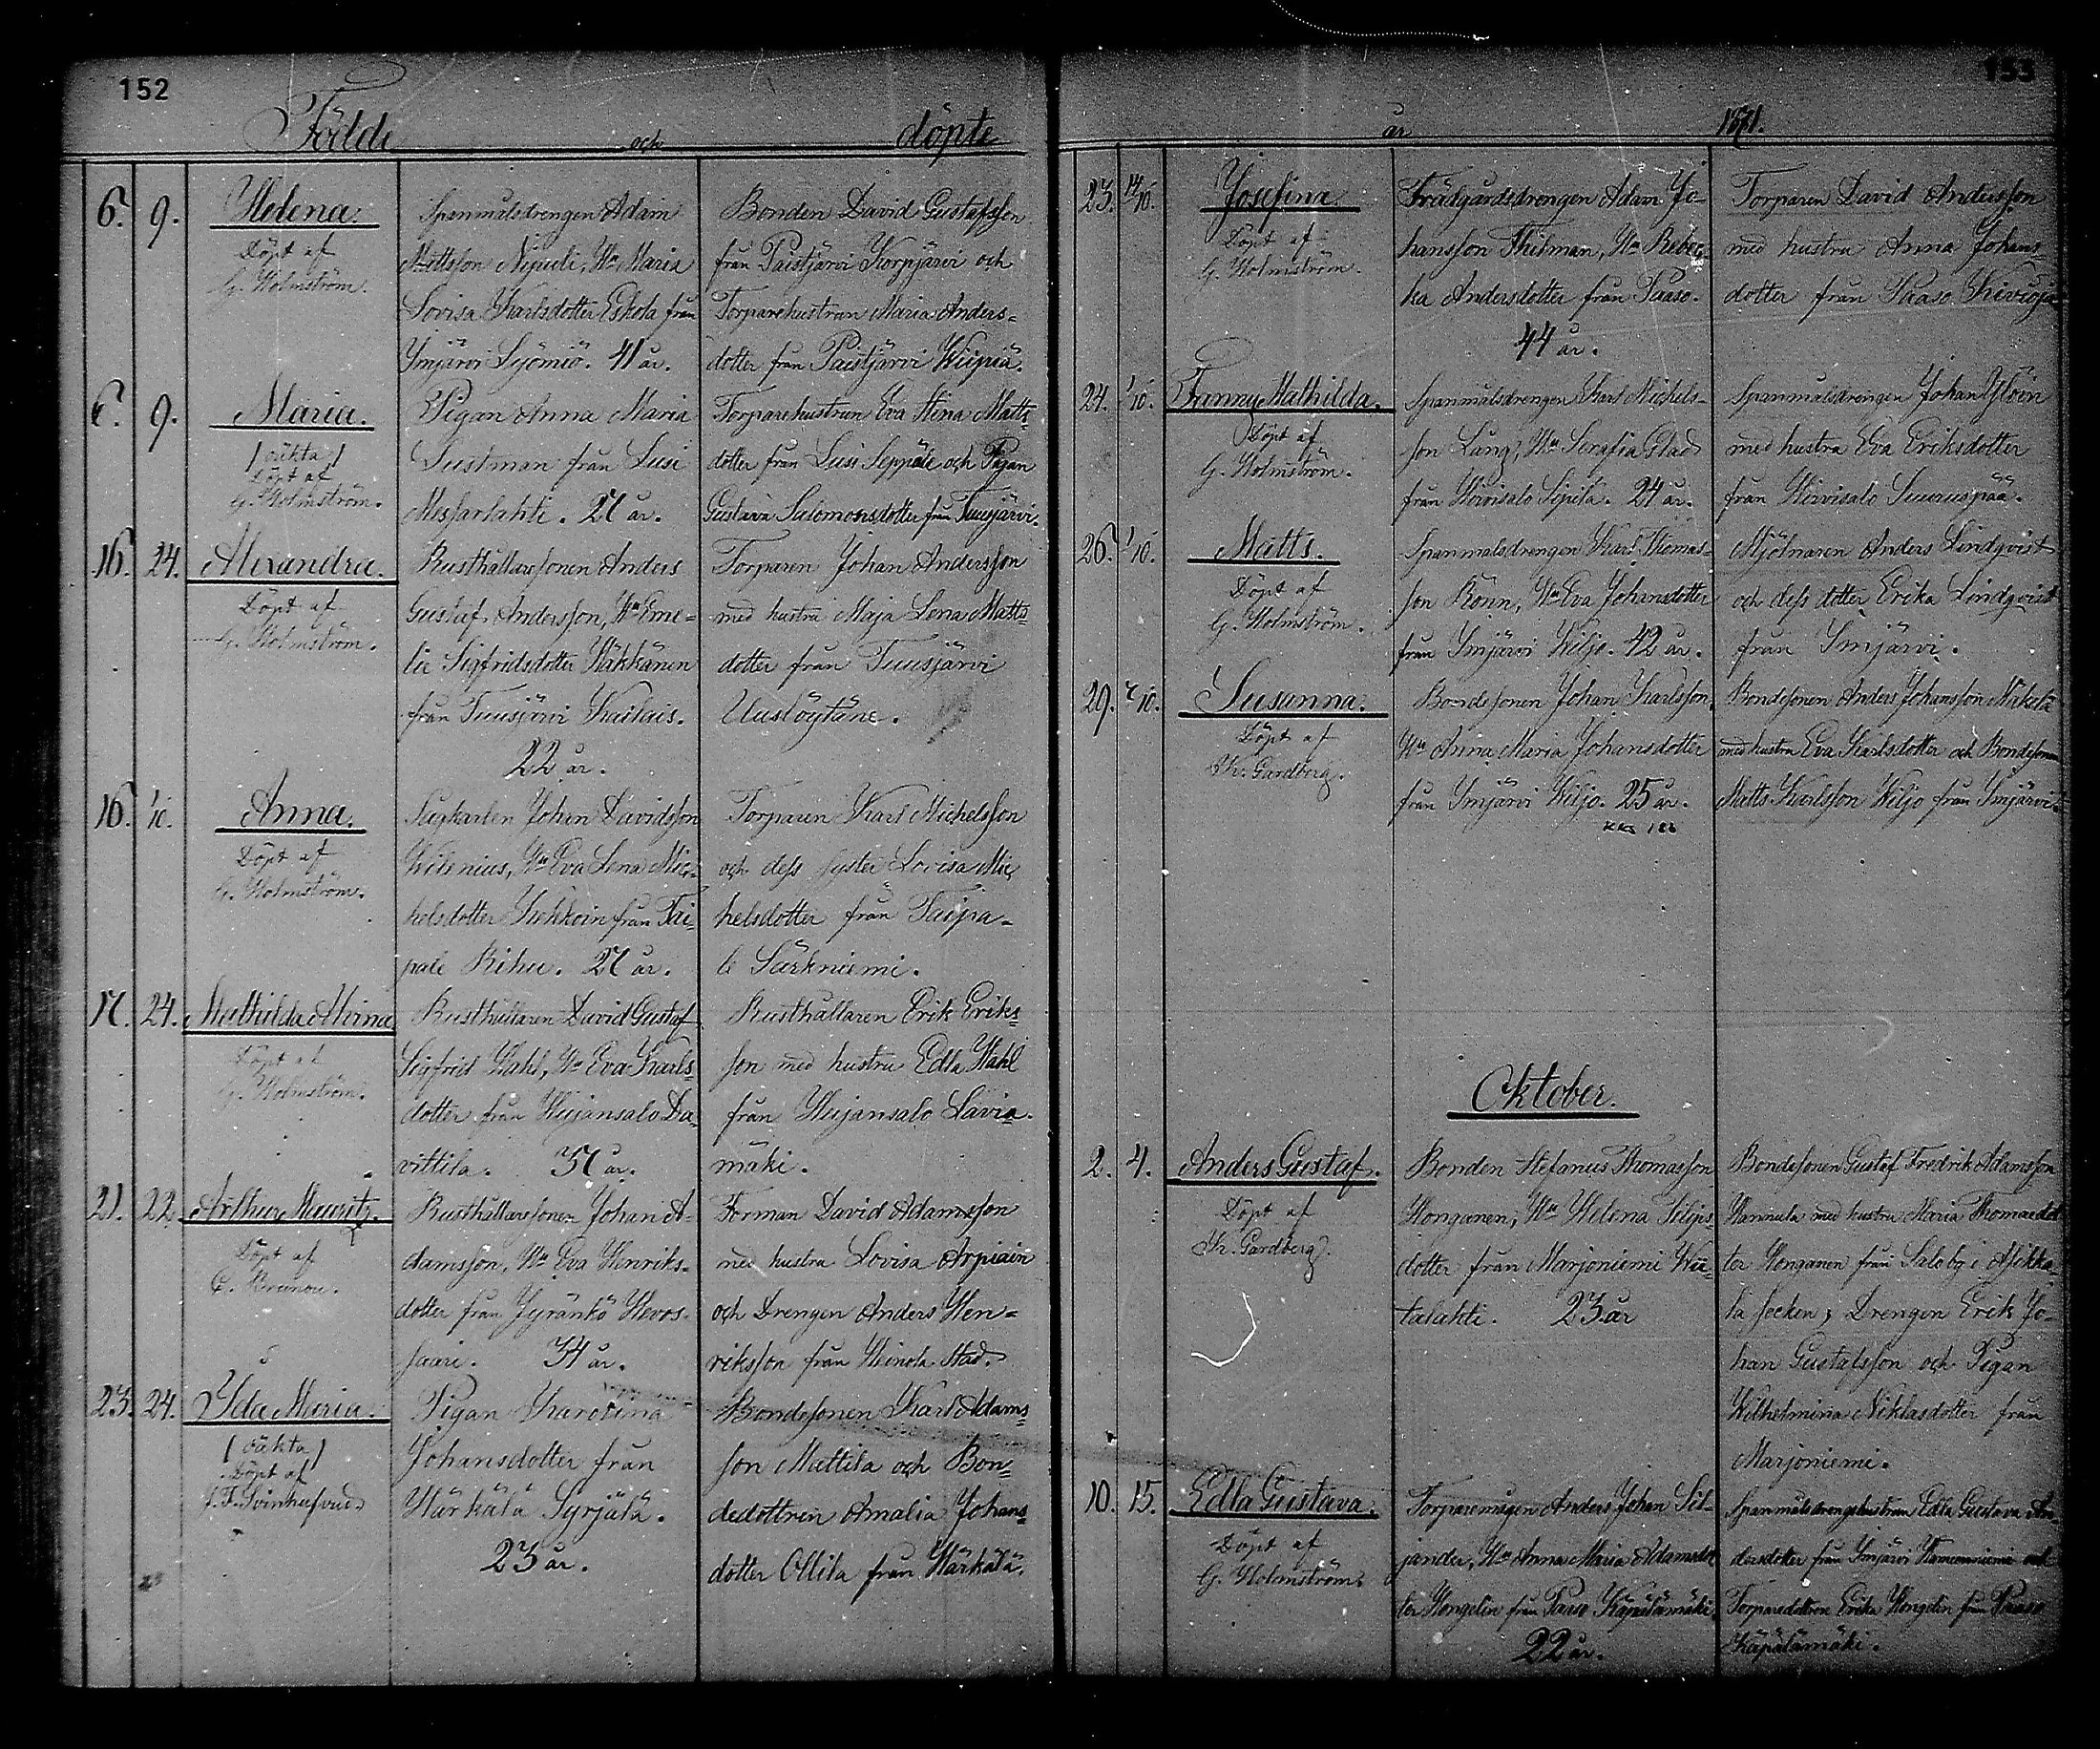 152
Födde och döpte
6. 9. Helena.
Döpt af
G. Holmström.
Spanmålsdrengen Adam
Mattsson Nipuli, Hu Maria
Lovisa Karlsdotter Eskola från
Ymjärvi Lyömiö. 41 år.
Bonden David Gustafsson
från Paistjärvi Korpjärvi och
Torparehustrun Maria Anders-
dotter från Paistjärvi Wiipiä.
6. 9. Maria.
/ oäkta /
Döpt af
G. Holmström.
Pigan Anna Maria
Lustman från Lusi
Messarlahti. 27 år.
Torparehustrun Eva Stina Matts-
dotter från Lusi Seppälä och Pigan
Gustava Salomonsdotter från Tuusjärvi.
16. 24. Alexandra.
Döpt af
G. Holmström.
Rusthållaresonen Anders
Gustaf Andersson, Hu Eme-
lie Sigfridsdotter Häkkänen
från Tuusjärvi Kailais.
22 år.
Torparen Johan Andersson
med hustru Maja Lena Matts-
dotter från Tuusjärvi
Uuslöytäne.
16. 1/10. Anna.
Döpt af
G. Holmström.
Sågkarlen Johan Davidsson
Hilenius, Hu Eva Lena Mic-
helsdotter från Tai-
pale Rihu. 27 år.
Torparen Karl Michelsson
och dess syster Lovisa Mic-
helsdotter från Taipa-
le Särkniemi.
17. 24. Mathilda Alvina
Döpt af
G. Holmström.
Rusthållaren David Gustaf
Sigfrid Stahl, Hu Eva Karls-
dotter från Hujansalo Da-
vittila. 37 år.
Rusthållaren Erik Eriks-
son med hustru Edla Stahl
från Hujansalo Lavia-
mäki.
21. 22. Arthur Mauritz.
Döpt af
C. Brunou.
Rusthållaresonen Johan A-
damsson, Hu Eva Henriks-
dotter från Jyränkö Hevos-
saari. 34 år.
Forman David Adamsson
med hustru Lovisa Arpiain
och Drengen Anders Hen-
riksson från Heinola Stad.
23. 24. Ida Maria.
/ oäkta /
Döpt af
J. F. Svinhufvud.
Pigan Karolina
Johansdotter från
Härkälä Syrjälä.
23 år.
Bondesonen Karl Adams-
son Mattila och Bon-
dedottren Amalia Johans-
dotter Ollila från Härkälä.
153
år 1871.
23. 14/10. Josefina.
Döpt af
G. Holmström.
Trädgårdsdrengen Adam Jo-
hansson Thilman, Hu Rebec-
ka Andersdotter från Paaso.
44 år.
Torparen David Andersson
med hustru Anna Johans-
dotter från Paaso Kivioja
24. 1/10. Fanny Mathilda.
Döpt af
G. Holmström.
Spanmålsdrengen Karl Michels-
son Lång, Hu Serafia Glad
från Hirvisalo Sipilä. 24 år.
Spanmålsdrengen Johan Ylöin
med hustru Eva Eriksdotter
från Hirvisalo Suuruspää.
26. 1/10. Matts.
Döpt af
G. Holmström.
Spanmålsdrengen Karl Thomas-
son Rönn, Hu Eva Johansdotter
från Ymjärvi Wiljo. 42 år.
Mjölnaren Anders Lindqvist
och dess dotter Erika Lindqvist
från Ymjärvi.
29. 7/10. Susanna.
Döpt af
Kr. Gardberg.
Bondesonen Johan Karlsson,
Hu Anna Maria Johansdotter
från Ymjärvi Wiljo. 25 år.
Bondesonen Anders Johansson Mäkelä
med hustru Eva Karlsdotter och Bondesonen
Matts Karlsson Wiljo från Ymjärvi.
Oktober.
2. 4. Anders Gustaf.
Döpt af
Kr. Gardberg.
Bonden Stefanus Thomasson
Honganen, Hu Helena Filips-
dotter från Marjoniemi Wii-
talahti. 23 år
Bondesonen Gustaf Fredrik Adamsson
Hannula med hustru Maria Thomasdot-
ter Honganen från Salo by i Asikka-
la socken, Drengen Erik Jo-
han Gustafsson och Pigan
Wilhelmina Niklasdotter från
Marjoniemi.
10. 15. Edla Gustava.
Döpt af
G. Holmström.
Torparemågen Anders Johan Sil-
jander, Hu Anna Maria Adamsdot-
ter Hongelin från Paaso Käpälämäki.
22 år.
Spanmålsdrengehustrun Edla Gustava An-
dersdotter från Ymjärvi och
Torparedottren Erika Hongelin från Paaso
Käpälämäki.